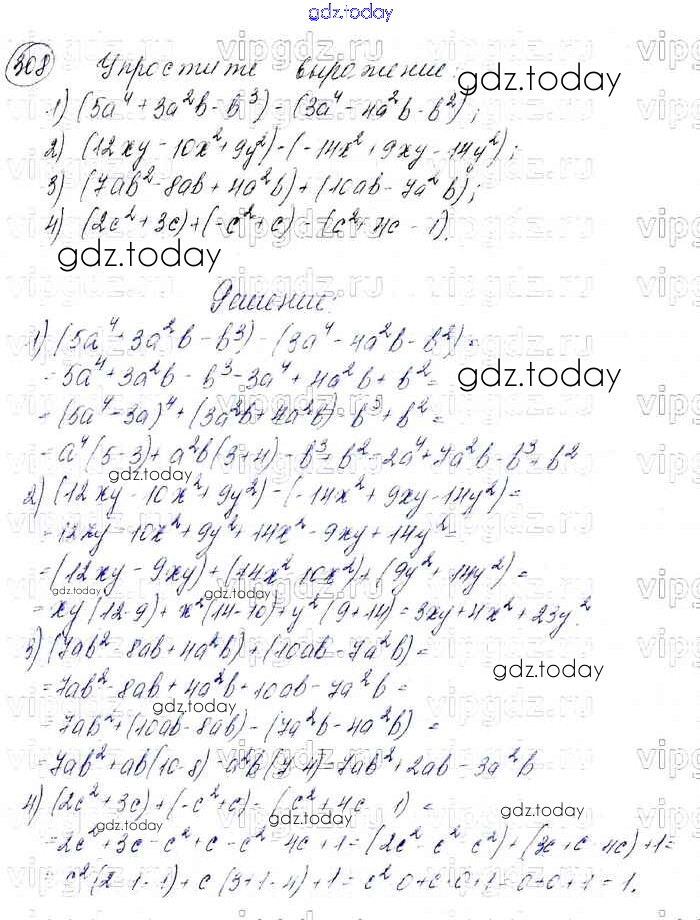 gdz.today
308 Упростите выражение:
1) (5a⁴ + 3a²b - b³) - (3a⁴ - 4a²b - b²);
2) (12xy - 10x² + 9y²) - (-14x² + 9xy - 14y²);
3) (7ab² - 8ab + 4a²b) + (10ab - 7a²b);
4) (2c² + 3c) + (-c² + c) - (c² + 4c - 1).
Решение:
1) (5a⁴ + 3a²b - b³) - (3a⁴ - 4a²b - b²) =
= 5a⁴ + 3a²b - b³ - 3a⁴ + 4a²b + b² =
= (5a⁴ - 3a)⁴ + (3a²b + 4a²b) - b³ + b² =
= a⁴(5-3) + a²b(3+4) - b³ + b² = 2a⁴ + 7a²b - b³ + b²
2) (12xy - 10x² + 9y²) - (-14x² + 9xy - 14y²) =
= 12xy - 10x² + 9y² + 14x² - 9xy + 14y² =
= (12xy - 9xy) + (14x² - 10x²) + (9y² + 14y²) =
= xy(12-9) + x²(14-10) + y²(9+14) = 3xy + 4x² + 23y².
3) (7ab² - 8ab + 4a²b) + (10ab - 7a²b) =
= 7ab² - 8ab + 4a²b + 10ab - 7a²b =
= 7ab² + (10ab - 8ab) - (7a²b - 4a²b) =
= 7ab² + ab(10-8) - a²b(7-4) = 7ab² + 2ab - 3a²b
4) (2c² + 3c) + (-c² + c) - (c² + 4c - 1) =
= 2c² + 3c - c² + c - c² - 4c + 1 = (2c² - c² - c²) + (3c + c - 4c) + 1 =
= c²(2-1-1) + c(3+1-4) + 1 = c²·0 + c·0 + 1 = 0 + 0 + 1 = 1.